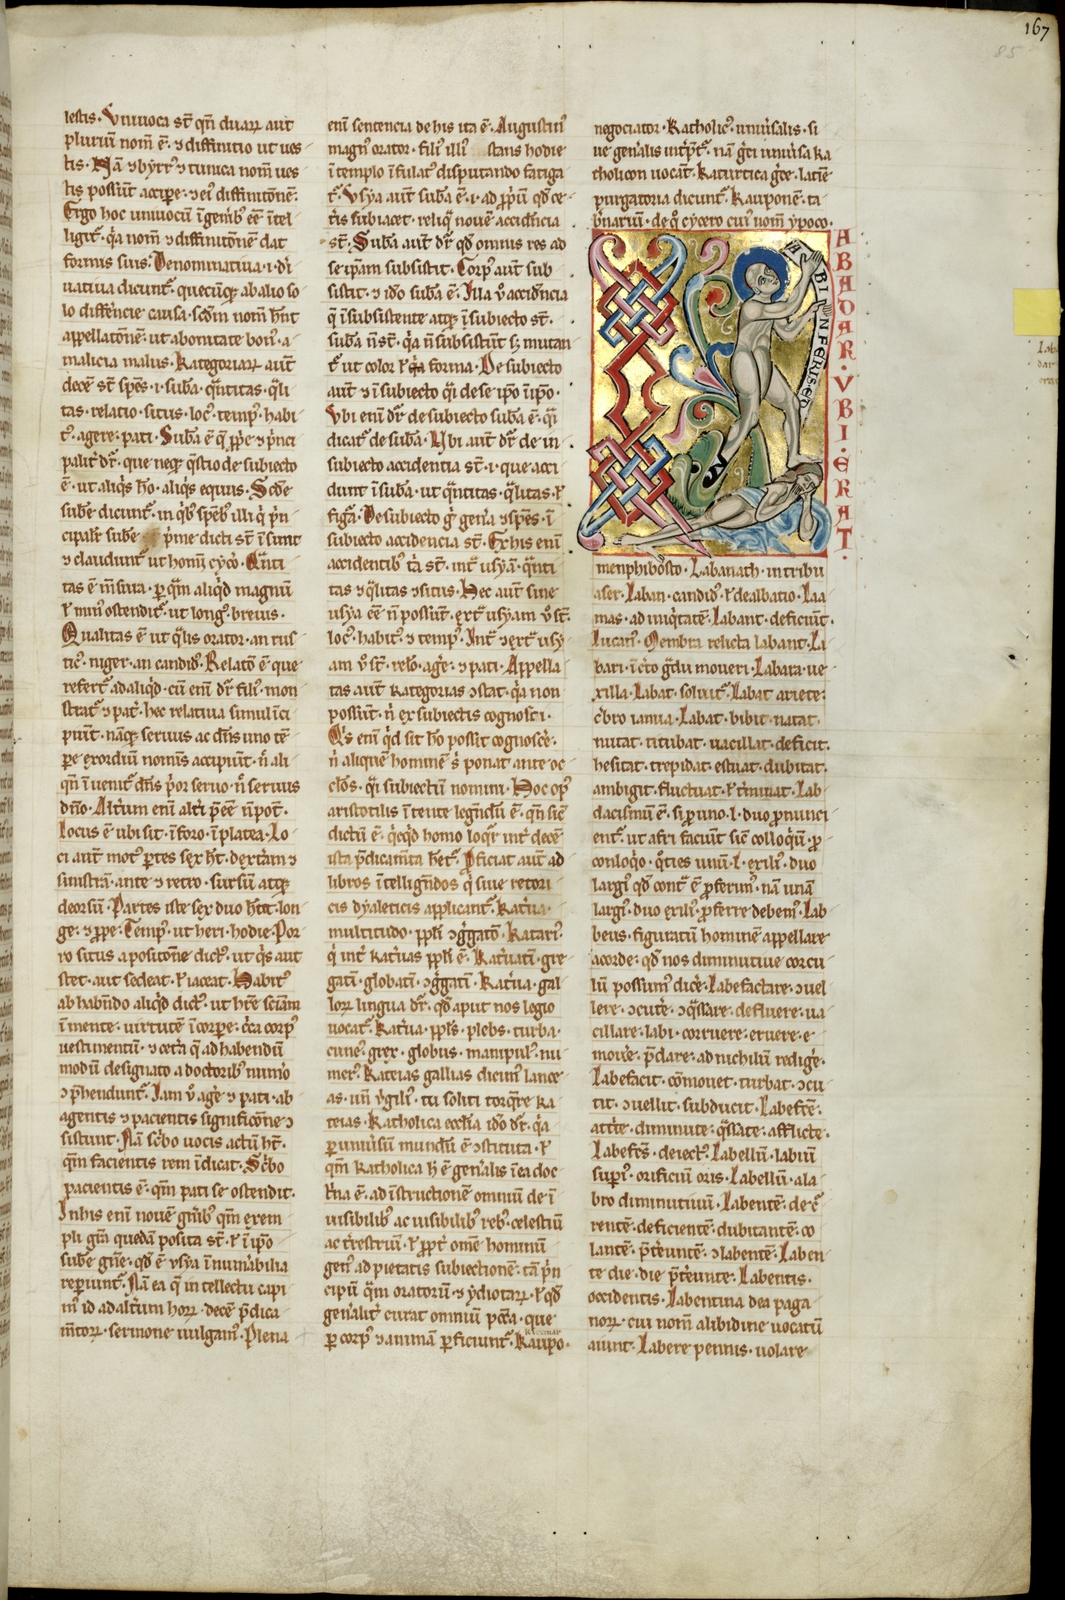 167
85
lestis. Vniuoca st̄ qn̄ duaꝝ aut
pluriū nom̄ ē. ⁊ diffinitio ut ues
tis. Nā ⁊ byrr᷒ ⁊ tunica nom̄ ues
tis possūt accipe. ⁊ ei᷒ diffinitōnē.
Ergo hoc uniuocū ī genib᷒ eē ītel
ligit᷑. q̇a nom̄ ⁊ diffinitōnē dat
formis suis. Denominatiua. i. di
uatiua dicunt᷑. quecūq; ab alio so
lo diffrēcie causa. scdm̄ nom̄ hn̄t
appellatōnē. ut a bonitate bon᷒. a
malicia malus. Kategoriaꝝ aut̄
decē st̄ spēs. i. suba. q̄ntitas. q̄li
tas. relatio. situs. loc᷒. temp᷒. habi
t᷒. agere. pati. Suba ē q̄ ꝓpe ⁊ p̄nci
palit̄ dr̄. que neq; q̄stio de subiecto
ē. ut aliq̇s hō. aliq̇s equus. Scd̄e
sube dicunt᷑. in qb᷒ speb᷒ illi q̇ p̄n
cipalr̄ sube p̄me dicti st̄ ī sunt
⁊ claudunt᷑ ut homī cyc̄o. Q̄nti
tas ē m̄sura. ꝑ qm̄ aliq̇d magnū
ł min᷒ ostendit᷑. ut long᷒. breuis.
Qualitas ē ut q̄lis orator. an rus
tic᷒. niger. an candid᷒. Relatō ē que
refert᷑ ad aliq̇d. cū enī dr̄ fili᷒. mon
strat᷑ ⁊ pat̄. hec relatiua simul īci
piūt. nāq; seruus ac dn̄s uno tē
pe exordiū nomīs accipiūt. n̄ ali
qn̄ īuenit᷑ dn̄s p̄or seruo. n̄ seruus
dn̄o. Altīum enī alt̄i p̄eē n̄ pot̄.
Locus ē ubi sit. ī foro. ī platea. Lo
ci aut̄ mot᷒ ꝑtes sex hn̄t. dext̄am ⁊
sinistrā. ante ⁊ retro. sursū atq;
deorsū. Partes iste sex duo hn̄t. lon
ge. ⁊ ꝓpe. Temp᷒. ut heri. hodie. Por
ro situs a positōne dict᷒. ut q̇s aut
stet. aut sedeat. ł iaceat. Habit᷒
ab habn̄do aliq̇d dict᷒. ut hr̄e sciām
ī mente. uirtutē ī corpe. c̄ca corp᷒
uestimentū. ⁊ cet̄a q̄ ad habendū
modū designato a doctorib᷒ num̄o
ꝯp̄hendunt᷑. Iam v̄ age ⁊ pati. ab
agentis ⁊ pacientis significōne ꝯ
sistunt. Nā sc̄bo uocis actū ht̄.
qm̄ facientis rem īdicat. Sc̄bo
pacientis ē. qm̄ pati se ostendit.
In his enī nouē gn̄ib᷒ qm̄ exem
pli gr̄a quedā posita st̄. ł ī ip̄o
sube gn̄e. qd̄ ē vsya īnumabilia
reperiunt᷑. Nā ea q̄ intellectu capi
m᷒ id ad alt̄um hoꝝ decē p̄dica
m̄toꝝ. sermone uulgam᷒. Plena
enī sentencia de his ita ē. Augustin᷒
magn᷒ orator. fili᷒ illi᷒ stans hodie
ī templo īfulat᷒ disputando fatiga
t᷑. Vsya aut̄ suba ē. i. ad ꝓpū qd̄ ce
t̄is subiacet. reliq̄ nouē accidn̄cia
st̄. Suba aut̄ dr̄ qd̄ omnis res ad
se ip̄am subsistit. Corp᷒ aut̄ sub
sistit. ⁊ idō suba ē. Illa v̄ accidn̄cia
q̄ ī subsistente atq; ī subiecto st̄.
suba n̄ st̄. q̇a n̄ subsistūt sꝫ mutan
t᷑ ut color ł forma. De subiecto
aut̄ ⁊ ī subiecto q̄i de se ip̄o ī ip̄o.
Vbi enī dr̄ de subiecto suba ē. q̄i
dicat᷑ de suba. Vbi aut̄ dr̄ de in
subiecto accidentia st̄. i. que acci
dunt ī suba. ut q̄ntitas. q̄litas. ł
figa. De subiecto g̊ gena ⁊ spēs. ī
subiecto accidencia st̄. Ex his enī
accidentib᷒ t̄a st̄. int̄ usyā. q̄nti
tas ⁊ q̄litas ⁊ situs. Hec aut̄ sine
usya eē n̄ possūt. ext̄ usyam v̄ st̄.
loc᷒. habit᷒. ⁊ temp᷒. Int̄ ⁊ ext̄ usy
am v̄ st̄. relo. age. ⁊ pati. Appella
tas aut̄ kategorias ꝯstat. q̇a non
possūt. n̄ ex subiectis cognosci.
Q̇s enī q̇d sit hō possit cognosce.
n̄ aliquē hominē s̄ ponat ante oc
clos. q̄i subiectū nomini. Hoc op᷒
aristotilis ītente legn̄dū ē. qn̄ sic̄
dictū ē. q̇cq̇d homo loqr̄ int̄ decē
ista p̄dicam̄ta het᷑. Ꝓficiat aut̄ ad
libros ītellign̄dos q̇ siue retori
cis dyaleticis applicant᷑. Kat̄ua.
multitudo. ppl̄i ꝯg̊gatō. Katari᷒.
q̇ int̄ kat̄uas ppl̄i ē. Kat̄uati. g̊e
gati. globati. ꝯg̊gati. Kat̄ua. gal
loꝝ lingua dr̄. qd̄ aput nos legio
uocat᷑. Kat̄ua. ppl̄s. plebs. turba.
cune᷒. grex. globus. manipul᷒. nu
mer᷒. Kateias gallias dicim᷒ lance
as. un̄ v̄gili᷒. tu soliti torq̄re ka
teias. Katholica ecclīa idō dr̄. q̇a
ꝑ uniūsū mundū ē ꝯstituta. ł
qm̄ katholica ꝫ ē genalis ī ea doc
t̄na ē. ad īstructionē omniū de ī
uisibilib᷒ ac uisibilib᷒ reb᷒. celestiū
ac t̄restriū. ł ꝓpt̄ omē hominū
gen᷒ ad pietatis subiectionē. tā p̄n
cipū qm̄ oratorū ⁊ ydiotaꝝ. ł qd̄
genalit̄ curat omniū pcc̄a. que
ꝑ corp᷒ ⁊ animā ꝑficiunt᷑. Kaupo.
negociator. Katholic᷒. uniūsalis. si
ue genalis int̄p̄t᷑. nā g̊ci uniūsa ka
tholicon uocāt. Katurtica g̊ce. latīe
purgatoria dicunt᷑. Kauponē. ta
b̄narium. de q̊ cycero cui᷒ nom̄ ypoco.
ABADAR. VBI. ERAT.
ABI INFERIS ED
menphibosto. Labanath. in tribu
aser. Laban. candid᷒. ł dealbatio. Laa
mas. ad iniq̇tatē. Labant. deficiūt.
Lucan᷒. Membra relicta labant. La
bari. ī c̄to g̊du moueri. Labara. ue
xilla. Labat. soluit᷑. Labat ariete
c̄bro ianua. Labat. bibit. natat.
nutat. titubat. uacillat. deficit.
hesitat. trepidat. estuat. dubitat.
ambigit. fluctuat. ł t̄minat. Lab
dacismū ē. si ꝓ uno. l. duo ꝓnunci
ent᷑. ut afri faciūt sic̄ colloq̇ū. ꝓ
conloq̇o. q̊ties unū. l. exili᷒. duo
larg᷒. qd̄ cont̄ ē ꝓferim᷒. nam unā
larg᷒. duo exili᷒. ꝓferre debem᷒. Lab
beus. figuratū hominē appellare
acorde. qd̄ nos diminutiue corcu
lū possum᷒ dice. Labefactare. ꝯuel
lere. ꝯcute. ꝯq̄ssare. defluere. ua
cillare. labi. corruere. eruere. e
moue. p̄dare. ad nichilū redige.
Labefacit. cōmouet. turbat. ꝯcu
tit. ꝯuellit. subducit. Labefc̄ē.
att̄te. diminute. q̄ssate. afflicte.
Labefc̄s. deiect᷒. Labellū. labiū
supi᷒. orificiū oris. Labellū. a la
bro diminutiuū. Labentē. de c̄
rentē. deficientē. dubitantē. co
lantē. p̄t̄euntē. ꝯlabentē. Laben
te die. die p̄t̄eunte. Labentis.
occidentis. Labentina dea paga
noꝝ. cui nom̄ a libidine uocatū
aiunt. Labere pennis. uolare